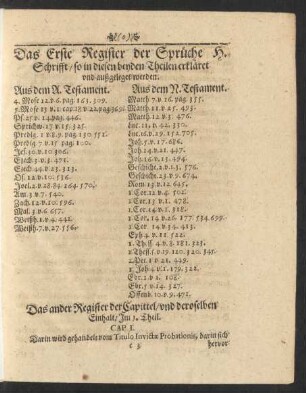 Das Erste Register der Sprüche H.
Schrifft / so in diesen beyden Theilen erkläret
vnd außgeleget werden.
Aus dem A. Testament.
4. Mose 12. v. 6. pag. 163. 309.
Ps. 25. v. 14. pag. 446.
Sprüchw. 17. v. 15. 325.
Predig. 1. v. 8. 9. pag. 130. 551.
Predig. 7. v. 15. pag. 100.
Jes. 30. v. 10. 306.
Ezech. 3. v. 3. 471.
Ezech. 44. v. 23. 313.
Os. 12. v. 10. 516.
Joel. 2. v. 28. 84. 264. 570.
Am. 3. v. 7. 540.
Zach. 12. v. 10. 596.
Mal. 3. v. 6. 657.
Weißh. 1. v. 4. 442.
Weißh. 7. v. 27. 556.
Aus dem N. Testament.
Matth. 7. v. 16. pag. 355.
Matth. 11. v. 25. 493.
Matth. 12. v. 3. 476.
Luc. 11. v. 44. 330.
Luc. 16. v. 19. 152. 705.
Joh. 5. v. 17. 686.
Joh. 14. v. 21. 447.
Joh. 16. v. 13. 494.
Geschicht. 2. v. 17. 576.
Geschicht. 23. v. 9. 674.
Rom. 13. v. 12. 645.
1. Cor. 2. v. 10. 445.
1. Cor. 13. v. 1. 487.
1. Cor. 14. v. 1. 318.
1. Cor. 14. v. 26. 177. 534. 699.
2. Cor. 14. v. 34. 413.
Eph. 4. v. 11. 522.
1. Thess. 4. v. 8. 181. 325.
1. Thess. 5. v. 19. 120. 320. 341.
2. Pet. 1. v. 21. 429.
1. Joh. 4. v. 1. 179. 328.
Ebr. 1. v. 1. 102.
Ebr. 5. v. 14. 527.
Offenb. 10. v. 9. 471.
Das ander Register der Capittel / vnd deroselben
Einhalt / Im 1. Theil.
CAP. I.
Darin wird gehandelt vom Titulo Invictæ Probationis, darin sich
c 3 hervor